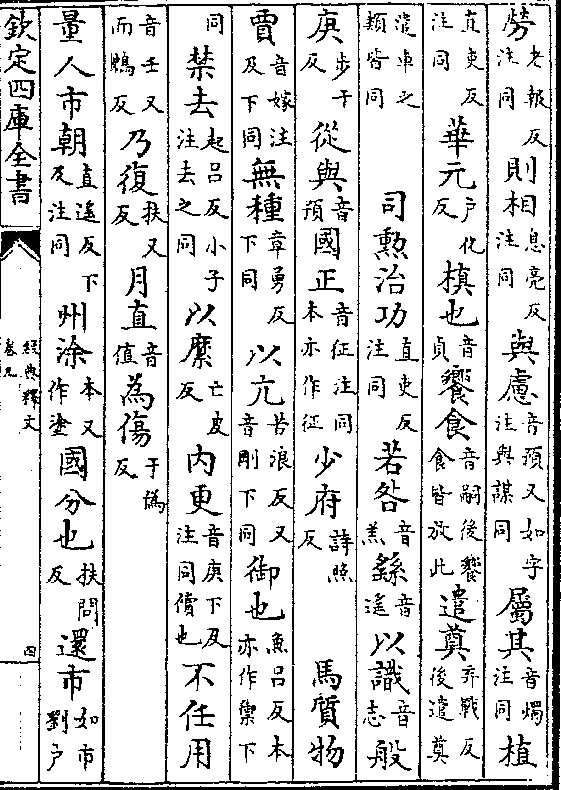 勞老報反注同則相息亮反注同與慮音預又如字注與謀同屬其音燭注同植
直吏反注同華元戶化反楨也音貞饗食音嗣後饗食皆放此遣奠弃戰反後遣奠
遣車之類皆同　司勲治功直吏反注同若咎音羔繇音遥以識音志般
庚步干反從與音預國正音征注同本亦作征少府詩照反　馬質物
賈音嫁注及下同無種章勇反下同以亢苦浪反又音剛下同御也魚吕反本亦作禦下
同禁去起吕反小子注去之同以縻亡皮反内更音庚下及注同償也不任用
音壬又而鴆反乃復扶又反月直音值為傷于僞反
量人市朝直遥反下及注同州涂本又作塗國分也扶問反還市如市劉戶
欽定四庫全書　經典釋文卷九　四